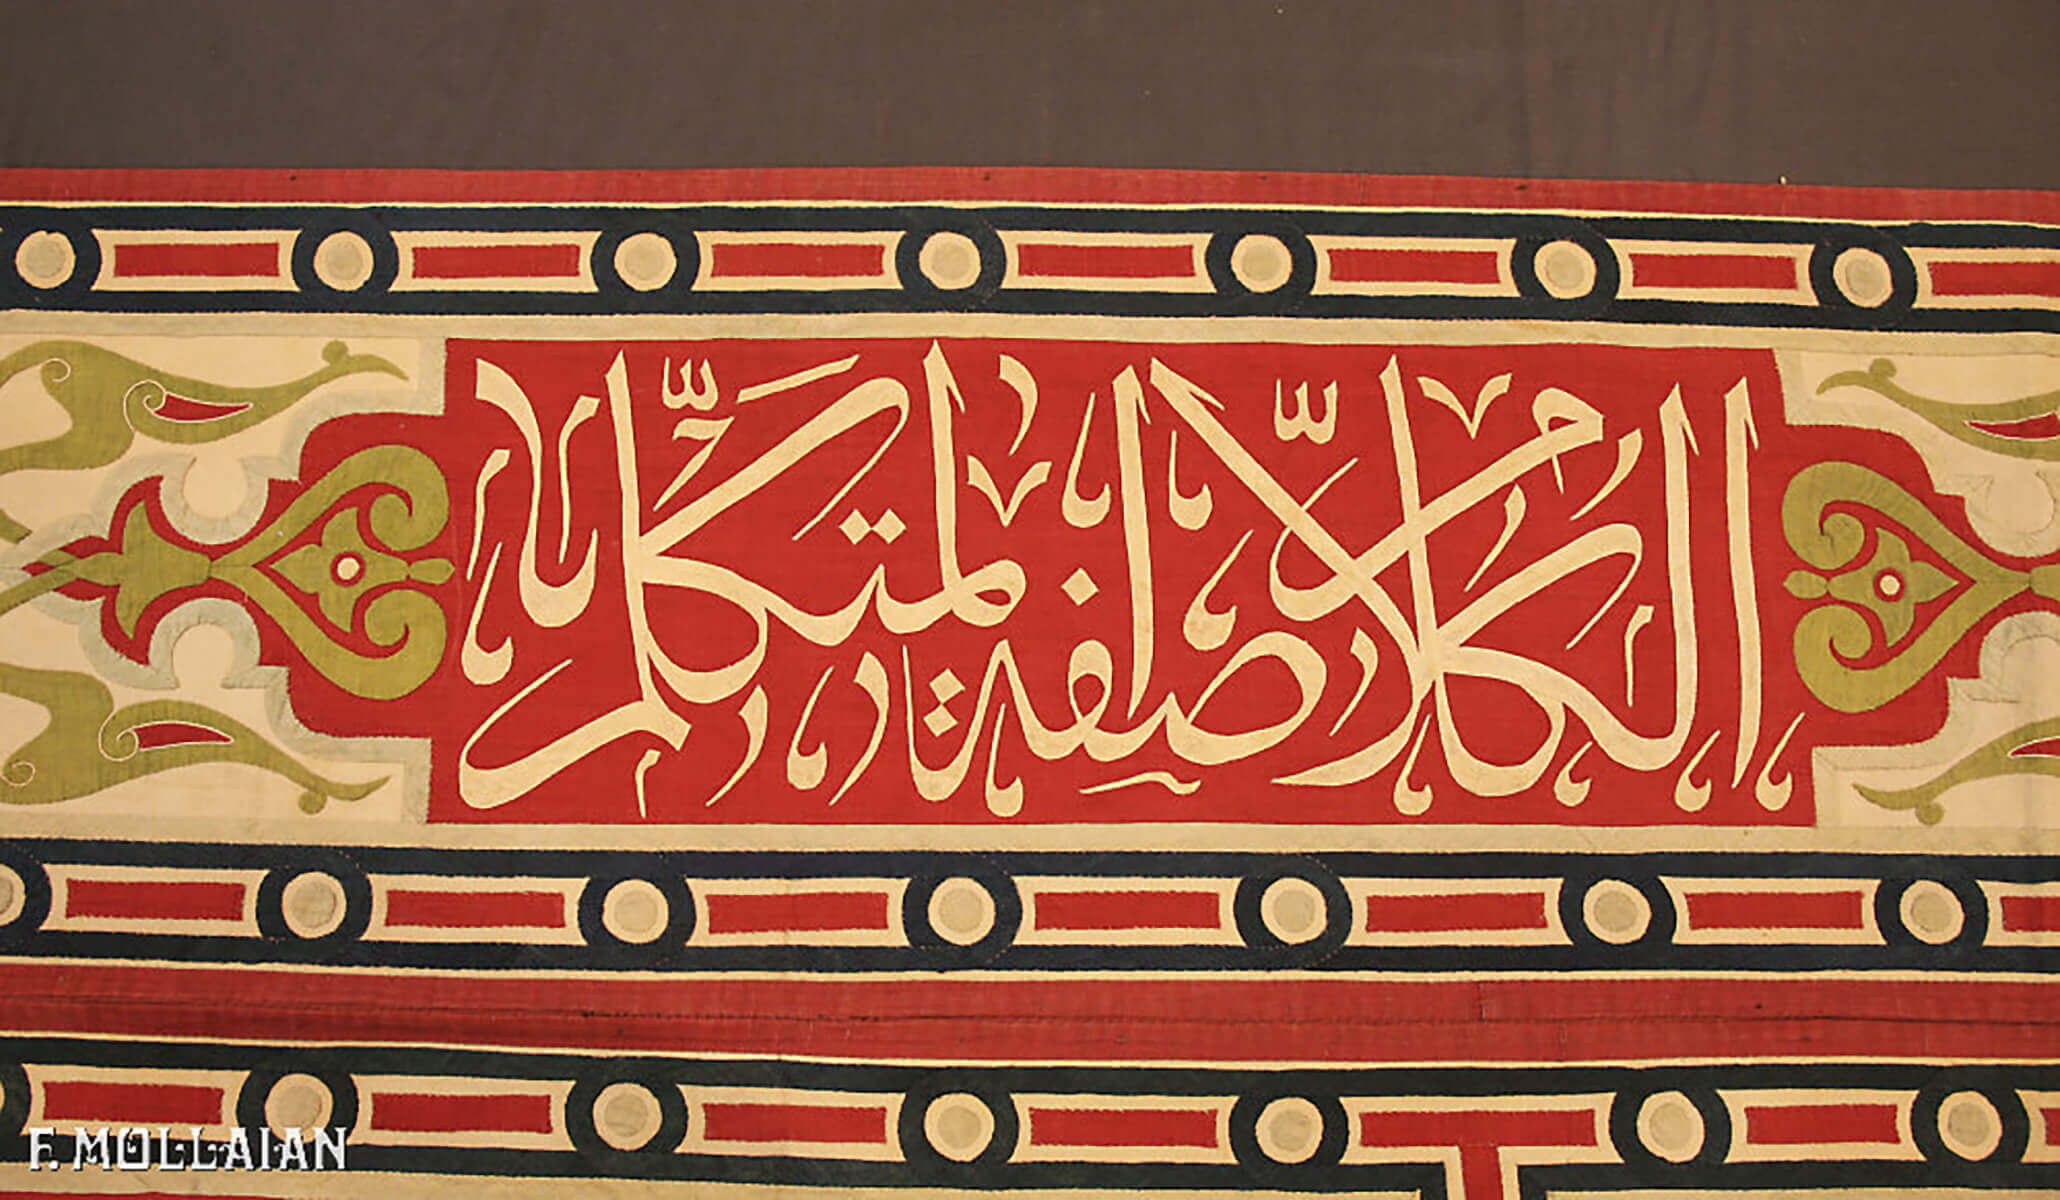 الكلام صفة المتكلم
F. MOLLAIAN